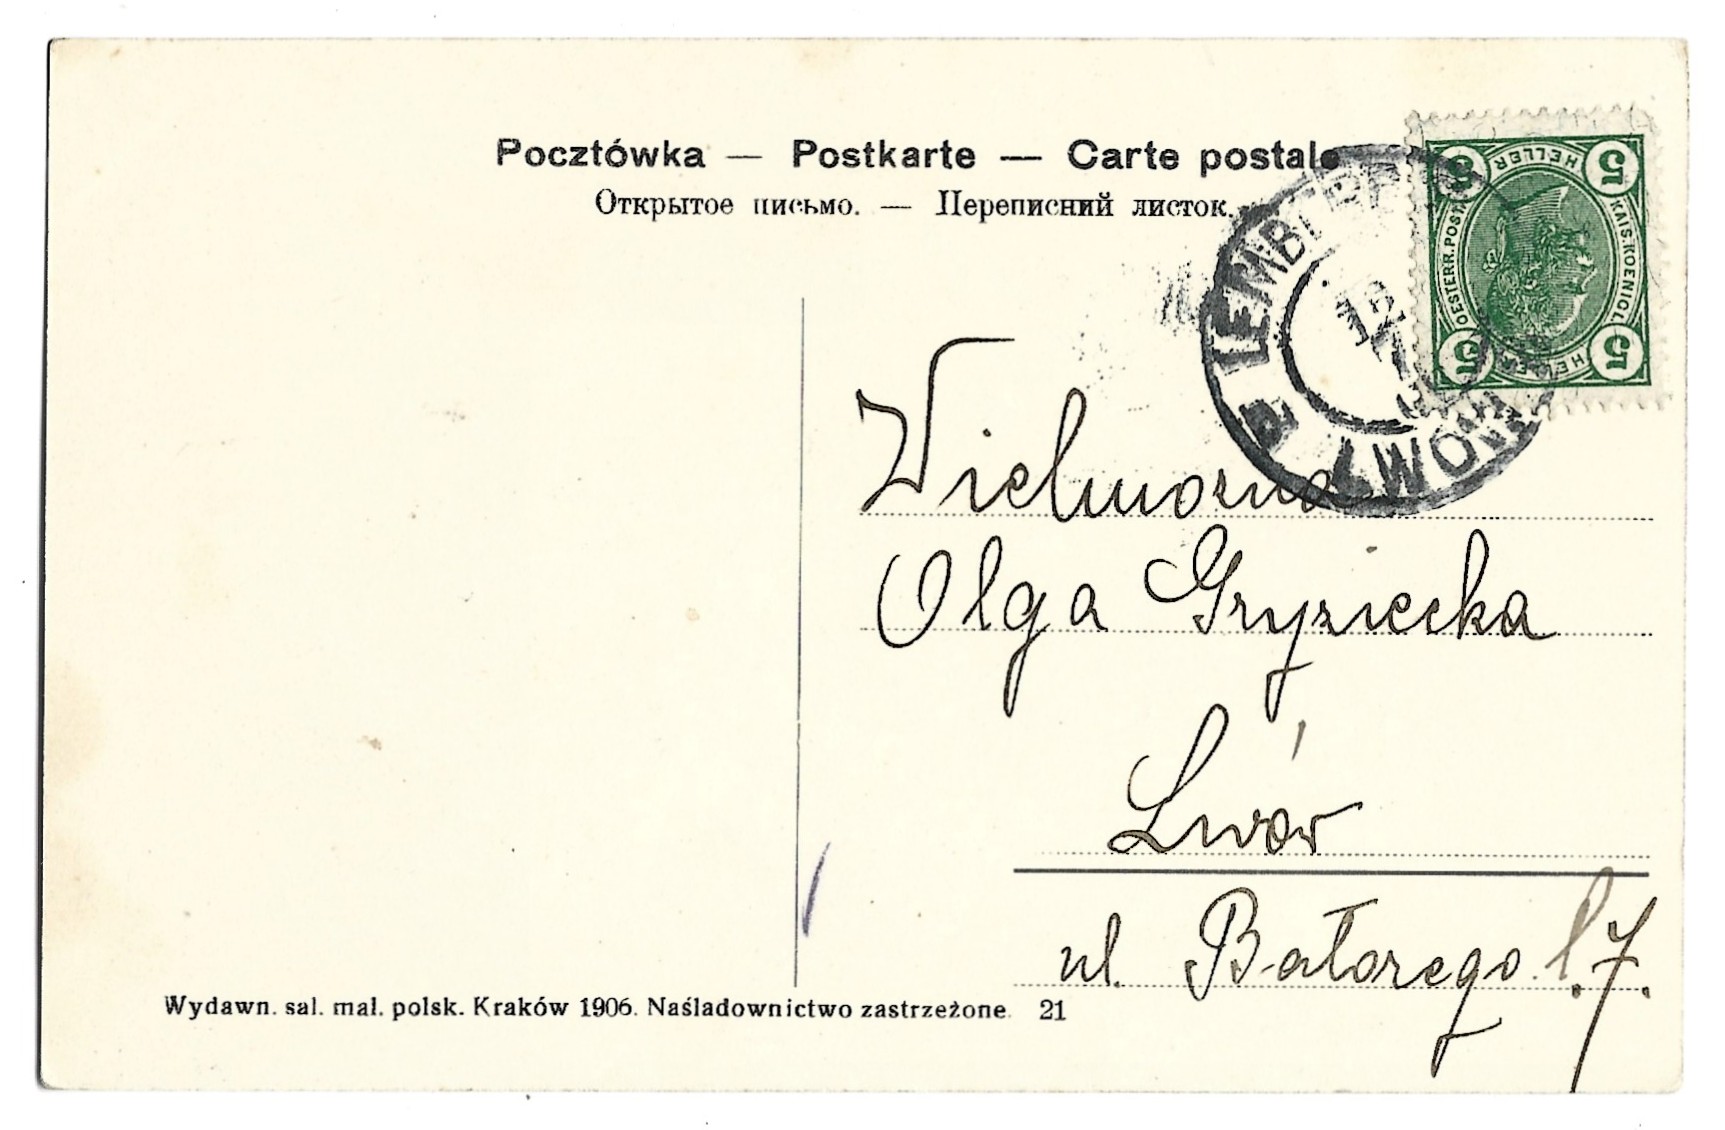 Pocztówka — Postkarte — Carte postale
Открытое письмо. — Переписний листок.
LEMBERG
12
LWÓW
5 HELLER 5
OESTERR. POST
KAIS. KOENIGL.
5 HELLER 5
Wielmożna
Olga Gryziecka
Lwów
ul. Batorego l. 7.
Wydawn. sal. mal. polsk. Kraków 1906. Naśladownictwo zastrzeżone. 21